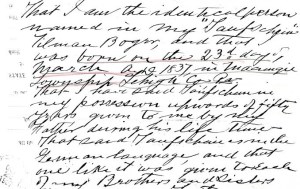 That I am the identical person
named in my "Taufschein"
Tilman Bogar, and that I
was born on the 23rd day of
March 1837 in
Township Lehigh Co Pa
That I have said Taufschein in
my possession upwards of fifty
years given to me by my
Father during his life time
That said Taufschein is in the
German language, and that
one like it was given to each
of my Brothers and Sisters